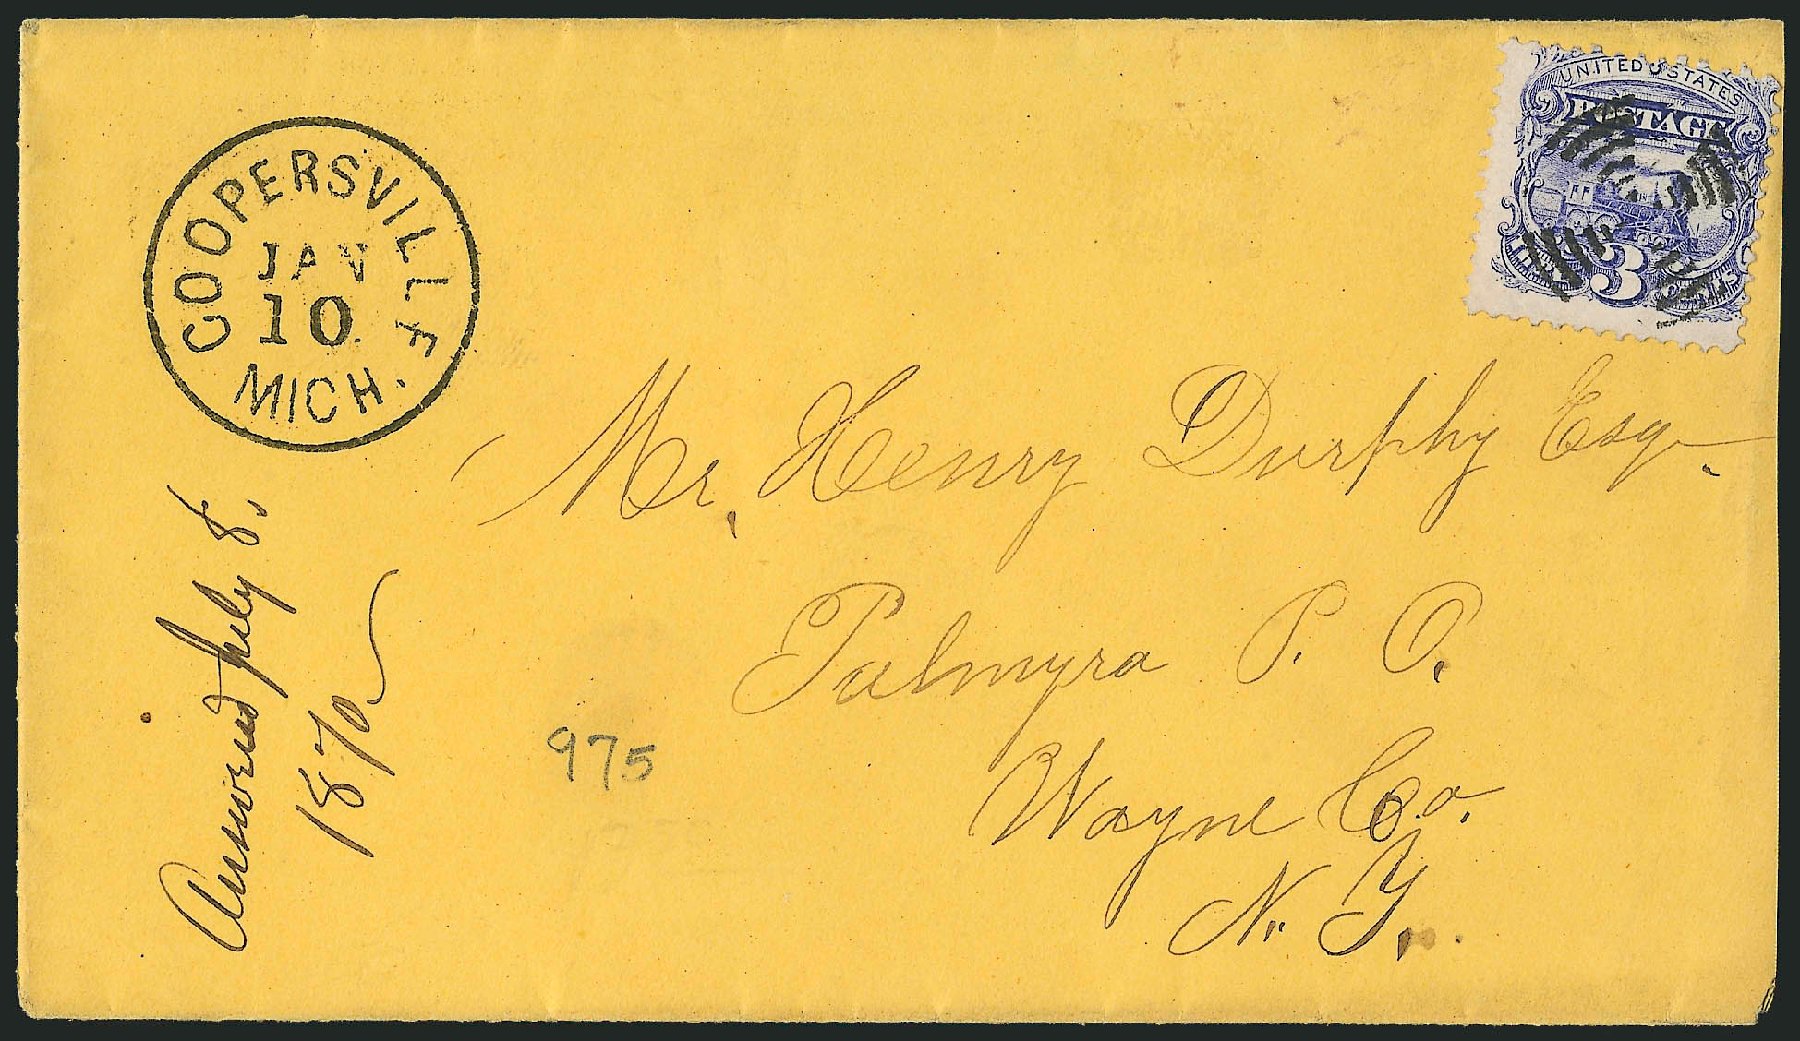 COOPERSVILLE
JAN
10
MICH.
UNITED STATES
POSTAGE
3
Mr. Henry Durphy Esq.
Palmyra P. O.
Wayne Co.
N. Y.
Answered July 8.
1870
975